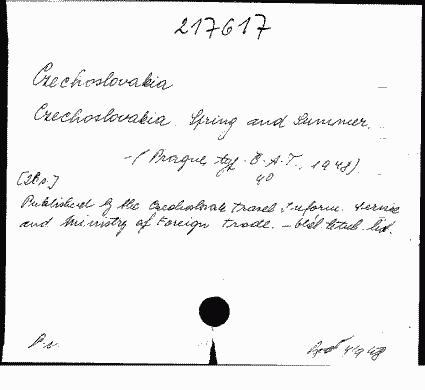 217617
Czechoslovakia
Czechoslovakia. Spring and Summer.
- (Prague, typ. B.A.T., 1948).
4°
Published by the Czechoslovak Travel Inform. Service
and Ministry of Foreign Trade. -
1948